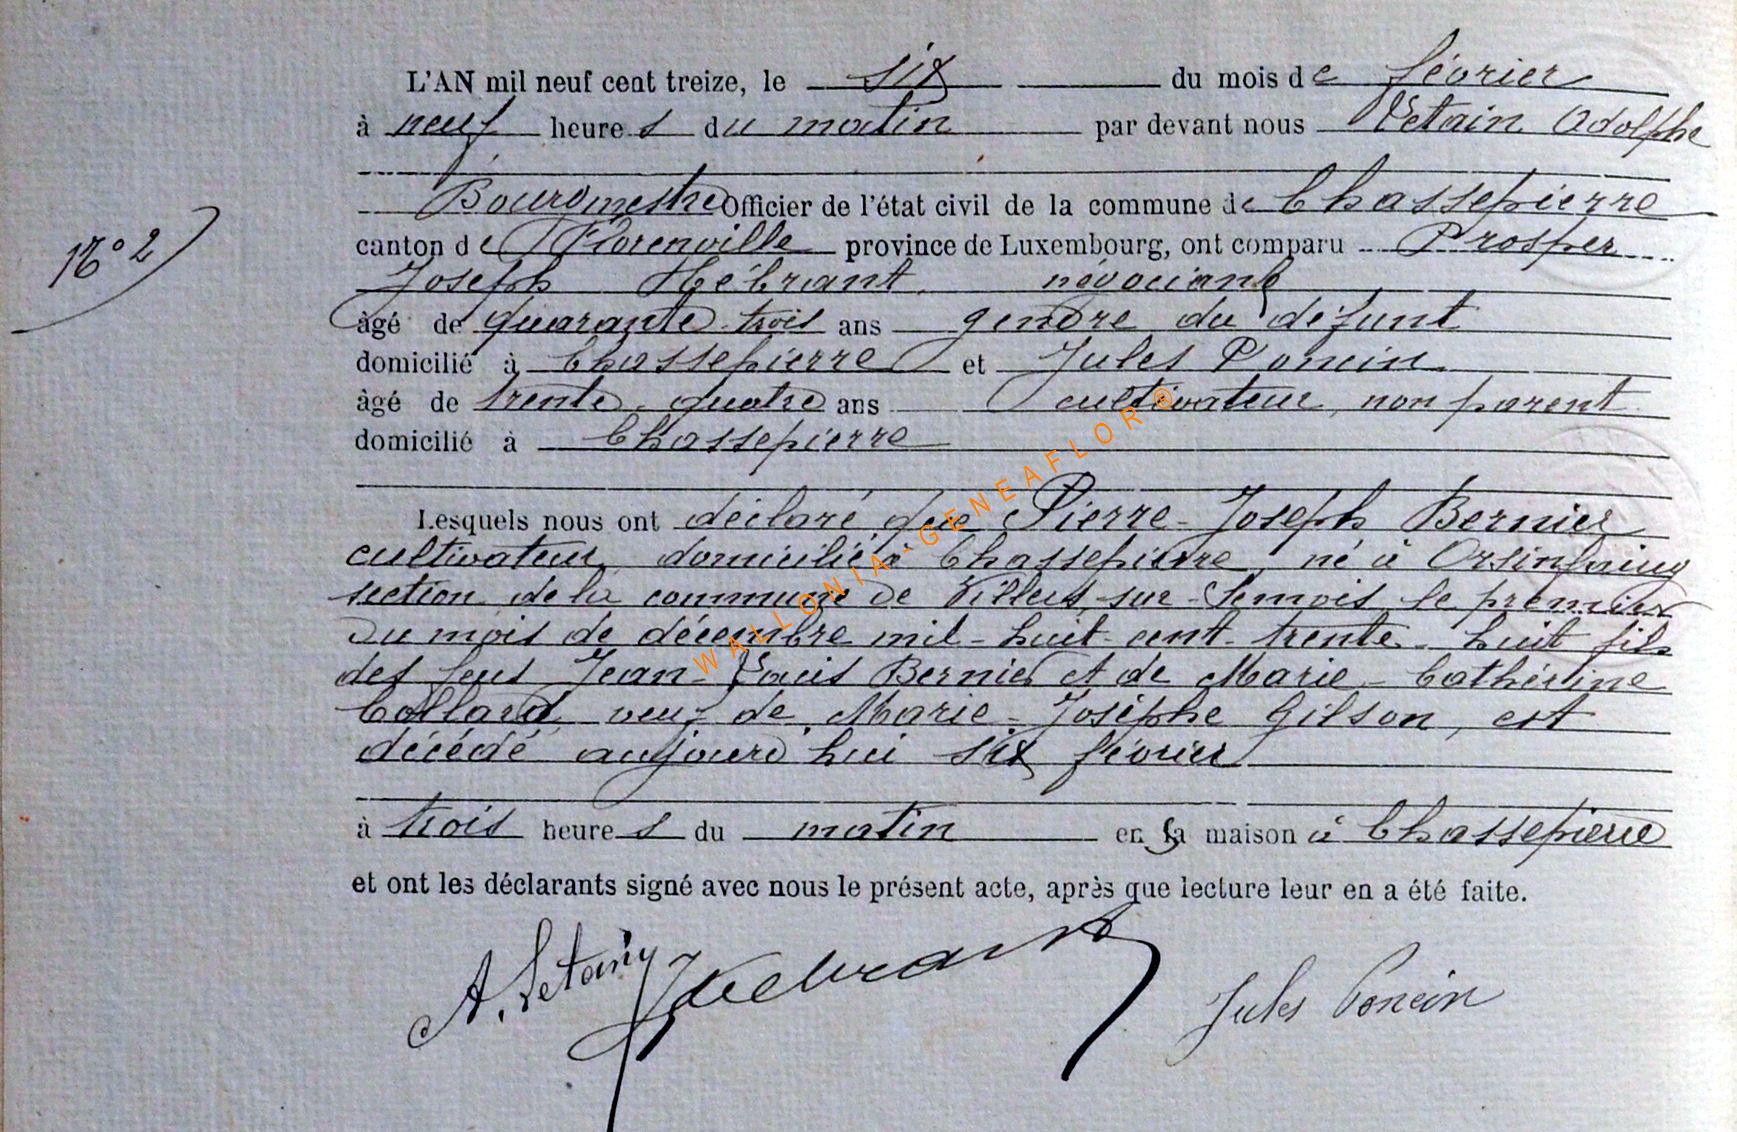 L'AN mil neuf cent treize, le six du mois de février
à neuf heures du matin par devant nous Letain Adolphe
Bourgmestre Officier de l'état civil de la commune de Chassepierre
N° 2
canton de Florenville province de Luxembourg, ont comparu Prosper
Joseph Hébrant, négociant
âgé de quarante trois ans gendre du défunt
domicilié à Chassepierre et Jules Poncin
âgé de trente-quatre ans cultivateur, non parent
domicilié à Chassepierre
Lesquels nous ont déclaré que Pierre-Joseph Bernier
cultivateur, domicilié à Chassepierre, né à Orsinfaing
section de la commune de Villers-sur-Semois le premier
du mois de décembre mil-huit-cent-trente-huit fils
des feus Jean-Louis Bernier et de Marie-Cathérine
Collard, veuf de Marie-Josèphe Gilson, est
décédé aujourd'hui six février
à trois heures du matin en sa maison à Chassepierre
et ont les déclarants signé avec nous le présent acte, après que lecture leur en a été faite.
A. Letain Hébrant Jules Poncin
WALLONIA-GENEAFLOR®